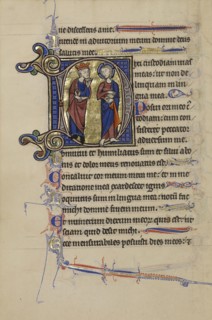 ne discesseris a me.
Intende in adiutorium meum domine deus
salutis mee.
Dixi custodiam vias
meas: ut non de
linquam in lin
gua mea.
Posui ori meo c
todiam: cum con
sisteret peccator
adversum me.
Obmutui et humiliatus sum et silui a bo
nis et dolor meus renovatus est.
Concaluit cor meum intra me: et in me
ditatione mea exardescet ignis.
Locutus sum in lingua mea: notum fac
michi domine finem meum.
Et numerum dierum meorum quis est: ut
sciam quid desit michi.
Ecce mensurabiles posuisti dies meos: et